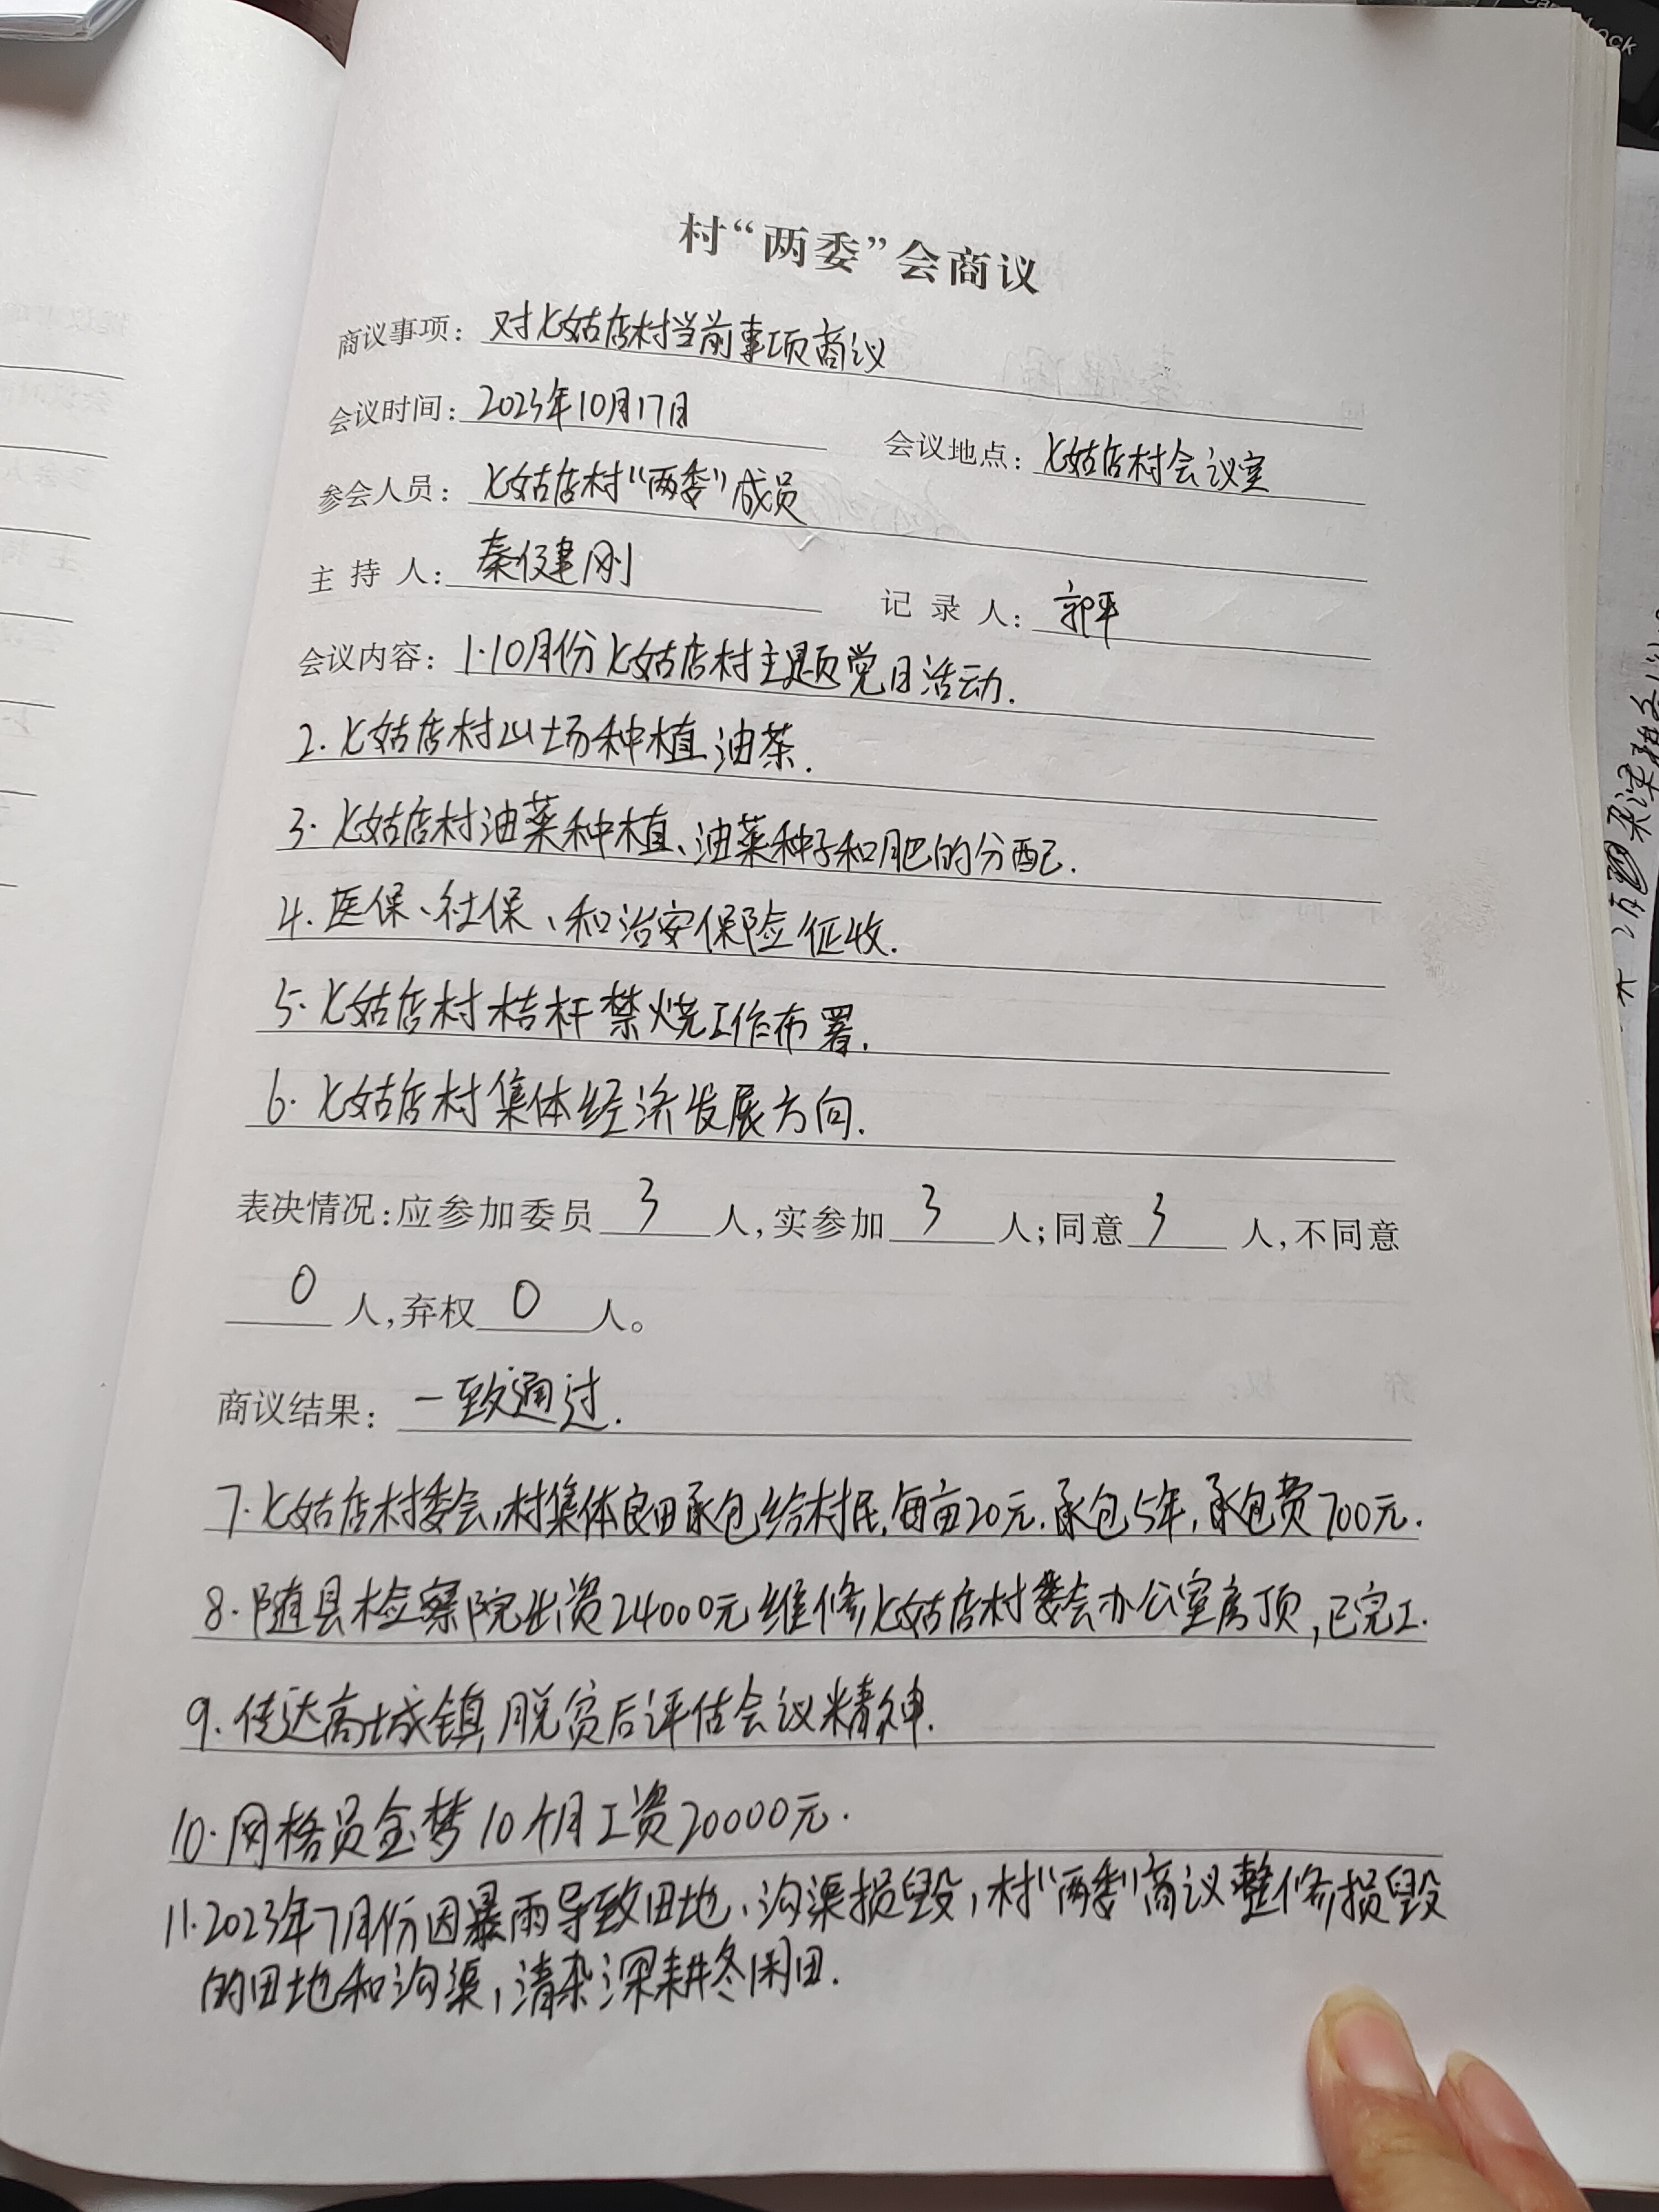 村“两委”会商议
商议事项：对七姑店村当前事项商议
会议时间：2023年10月17日 会议地点：七姑店村会议室
参会人员：七姑店村“两委”成员
主持人：秦健刚 记录人：郭平
会议内容：1.10月份七姑店村主题党日活动.
2.七姑店村山场种植油茶.
3.七姑店村油菜种植、油菜种子和肥的分配.
4.医保、社保、和治安保险征收.
5.七姑店村桔杆禁烧工作布署.
6.七姑店村集体经济发展方向.
表决情况：应参加委员3人，实参加3人；同意3人，不同意
0人，弃权0人。
商议结果：一致通过.
7.七姑店村委会，村集体良田承包给村民，每亩20元.承包5年，承包费700元.
8.随县检察院出资24000元维修七姑店村委会办公室房顶，已完工.
9.传达高城镇脱贫后评估会议精神.
10.网格员金梦10个月工资20000元.
11.2023年7月份因暴雨导致田地、沟渠损毁，村“两委”商议整修损毁
的田地和沟渠，清杂深耕冬闲田.